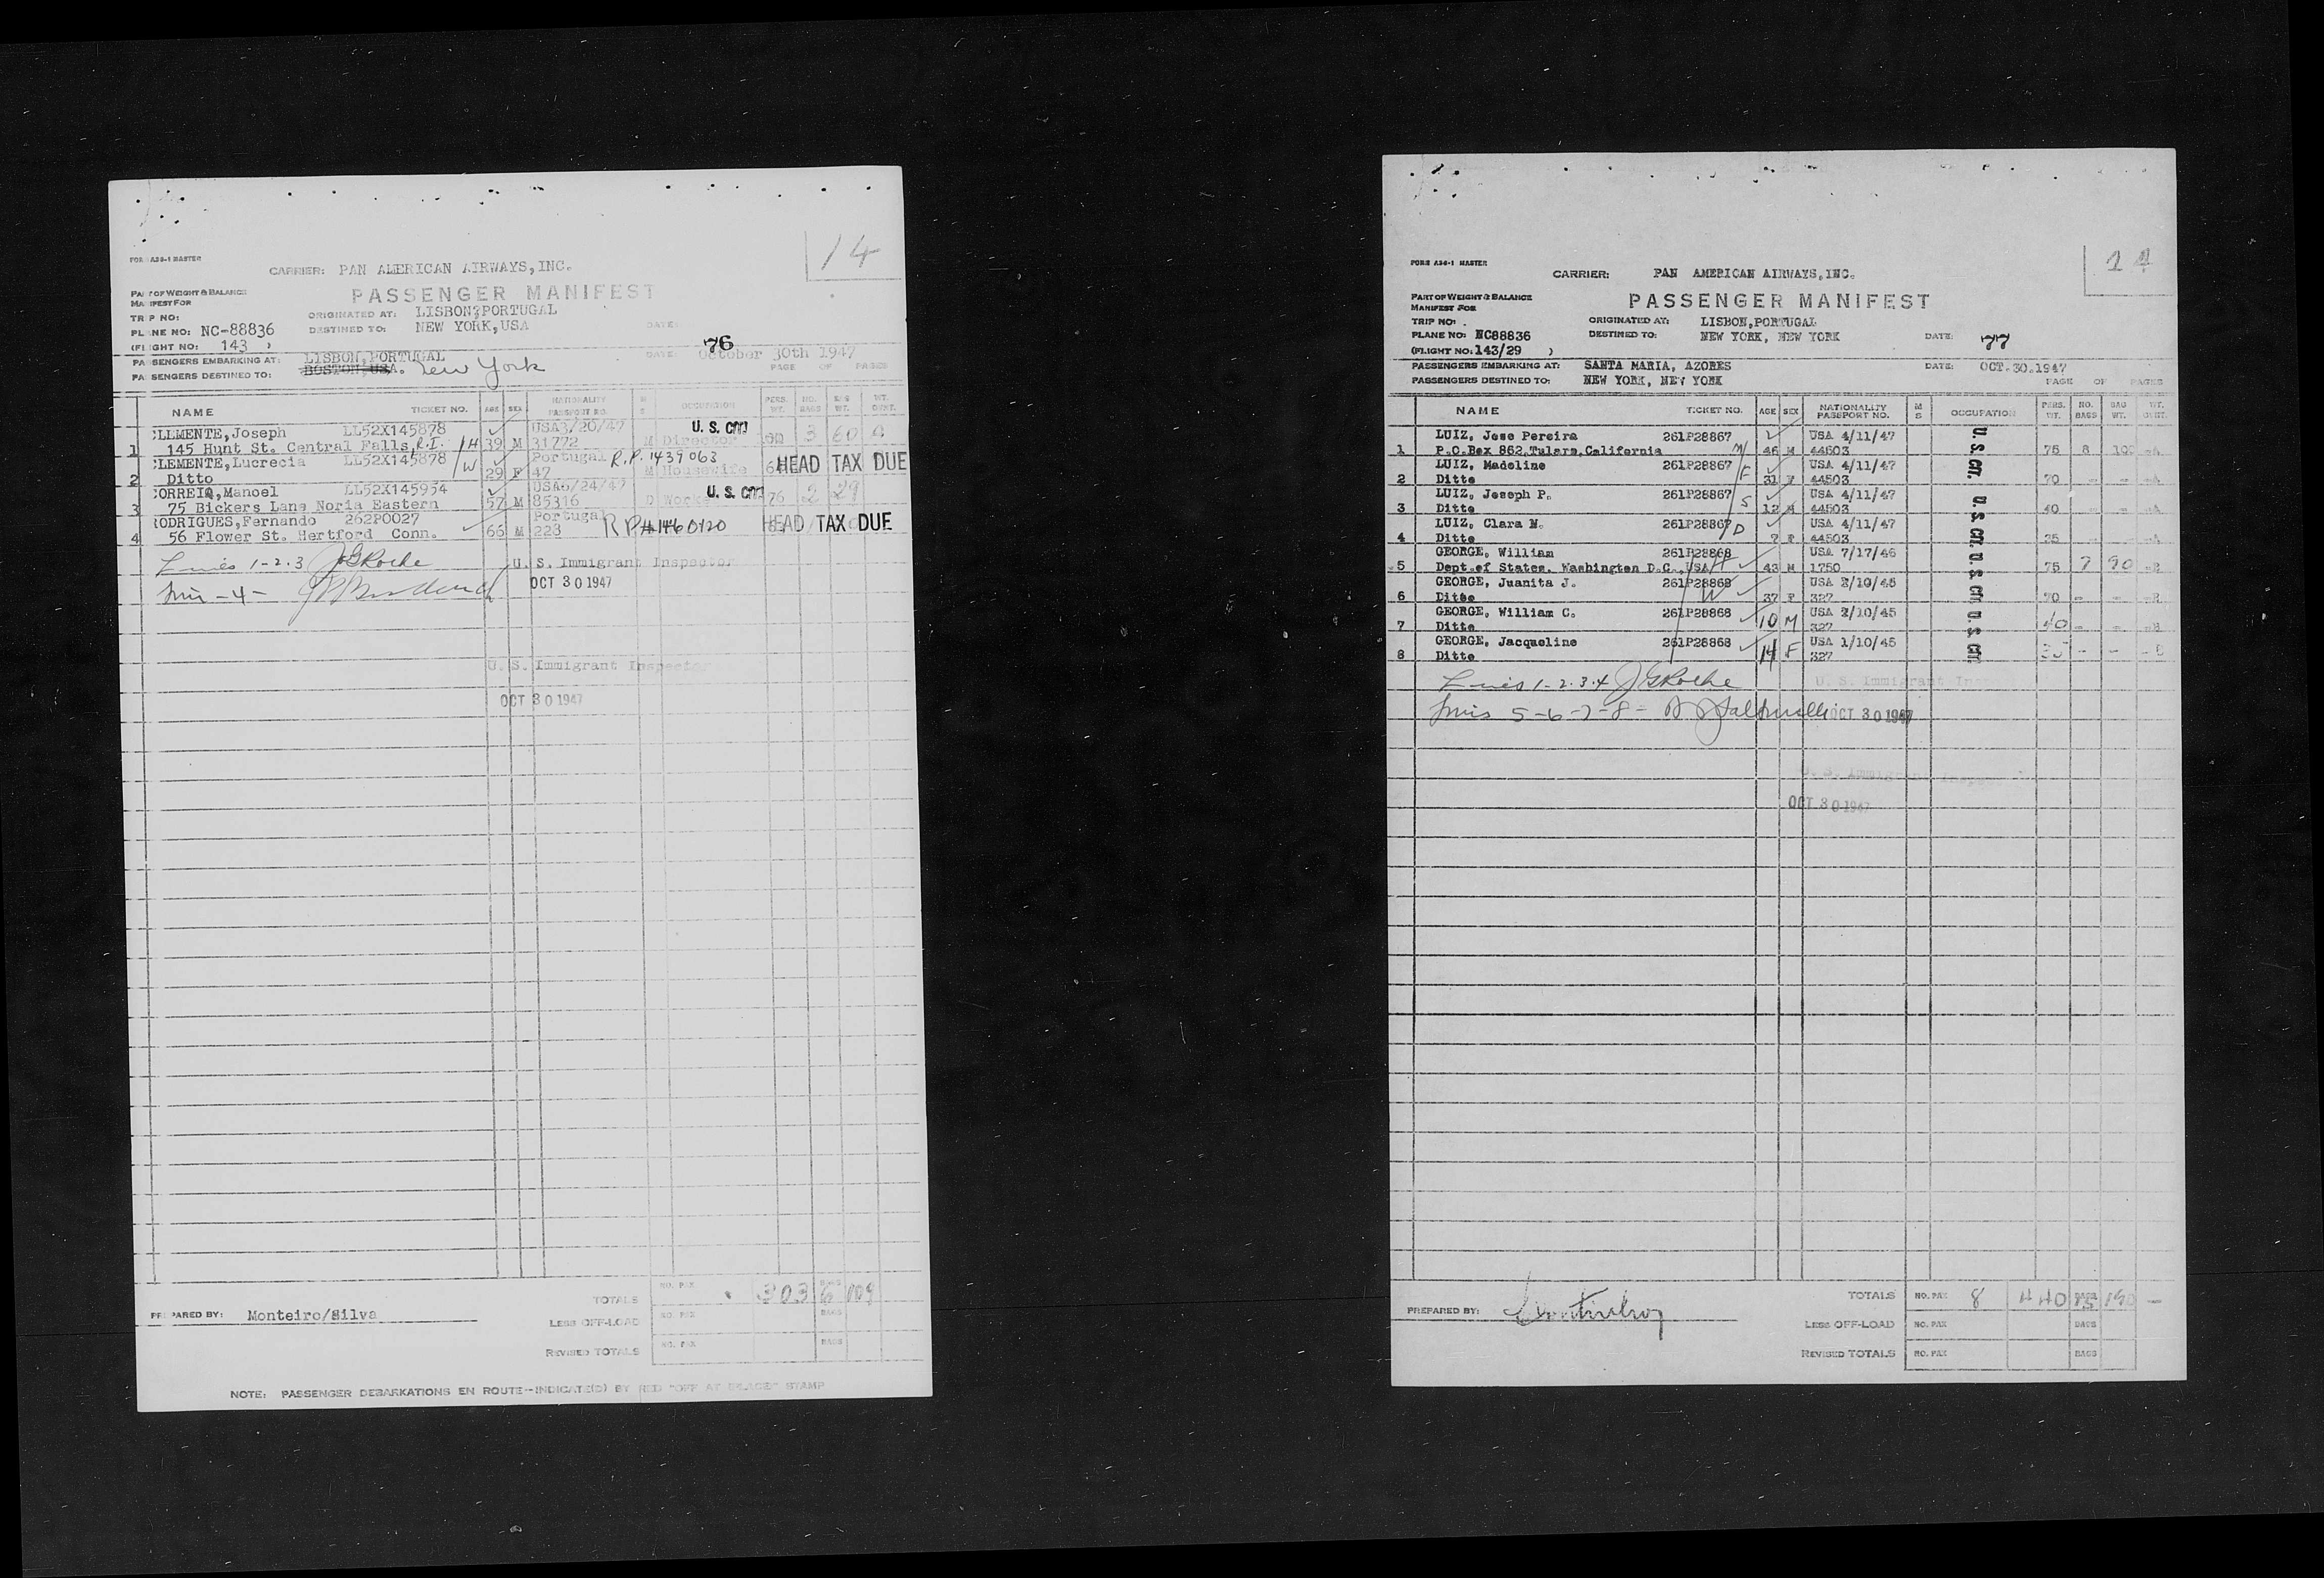 14
FORM A36-1 MASTER
CARRIER: PAN AMERICAN AIRWAYS, INC.
PART OF WEIGHT & BALANCE
MANIFEST FOR
PASSENGER MANIFEST
TRIP NO:
ORIGINATED AT: LISBON, PORTUGAL
PLANE NO: NC-88836
DESTINED TO: NEW YORK, USA
DATE:
(FLIGHT NO: 143 )
76
PASSENGERS EMBARKING AT: LISBON, PORTUGAL
DATE: October 30th 1947
PASSENGERS DESTINED TO: BOSTON, USA. New York
PAGE OF PAGES
NAME TICKET NO. AGE SEX NATIONALITY PASSPORT NO. M S OCCUPATION PERS. WT. NO. BAGS BAG WT. WT. OVHT.
CLEMENTE, Joseph LL52X145878 USA3/20/47 U. S. CIT.
1 145 Hunt St. Central Falls, R.I. /H 39 M 31772 M Director 3 60
CLEMENTE, Lucrecia LL52X145878 Portugal R.P. 1439063
2 Ditto /W 29 F 47 M Housewife HEAD TAX DUE
CORREIA, Manoel LL52X145954 USA6/24/47 U. S. CIT.
3 75 Bickers Lane Noria Eastern 57 M 85316 D 76 2 29
RODRIGUES, Fernando 262P0027 Portugal
4 56 Flower St. Hertford Conn. 66 M 228 RP#1460120 HEAD TAX DUE
Lines 1-2-3 J G Roche U. S. Immigrant Inspector
Lines -4- OCT 30 1947
U. S. Immigrant Inspector
OCT 30 1947
TOTALS NO. PAX 303 BAGS 6 109
PREPARED BY: Monteiro/Silva
LESS OFF-LOAD NO. PAX BAGS
REVISED TOTALS NO. PAX BAGS
NOTE: PASSENGER DEBARKATIONS EN ROUTE--INDICATE(D) BY RED "OFF AT (PLACE)" STAMP
14
FORM A36-1 MASTER
CARRIER: PAN AMERICAN AIRWAYS, INC.
PART OF WEIGHT & BALANCE
MANIFEST FOR
PASSENGER MANIFEST
TRIP NO:
ORIGINATED AT: LISBON, PORTUGAL
PLANE NO: NC88836
DESTINED TO: NEW YORK, NEW YORK
DATE: 77
(FLIGHT NO: 143/29 )
PASSENGERS EMBARKING AT: SANTA MARIA, AZORES
DATE: OCT.30.1947
PASSENGERS DESTINED TO: NEW YORK, NEW YORK
PAGE OF PAGES
NAME TICKET NO. AGE SEX NATIONALITY PASSPORT NO. M S OCCUPATION PERS. WT. NO. BAGS BAG WT. WT. OVHT.
LUIZ, Jose Pereira 261P28867 USA 4/11/47 U. S. CIT.
1 P.O.Box 862, Tulare, California M/ 46 M 44503 75 8 100 -A
LUIZ, Madeline 261P28867 USA 4/11/47
2 Ditto /F 31 F 44503 70 - - -A
LUIZ, Joseph P. 261P28867 USA 4/11/47 U. S. CIT.
3 Ditto /S 12 M 44503 40 - - -A
LUIZ, Clara M. 261P28867 USA 4/11/47
4 Ditto /D 7 F 44503 35 - - -A
GEORGE, William 261P28868 USA 7/17/46 U. S. CIT.
5 Dept.of States, Washington D.C., USA /H 43 M 1750 75 7 90 -B
GEORGE, Juanita J. 261P28868 USA 2/10/45
6 Ditto /W 37 F 327 70 - - -B
GEORGE, William C. 261P28868 USA 2/10/45 U. S. CIT.
7 Ditto 10 M 327 40 - - -B
GEORGE, Jacqueline 261P28868 USA 1/10/45
8 Ditto 14 F 327 35 - - -B
Lines 1-2-3-4 J G Roche U. S. Immigrant Inspector
Lines 5-6-7-8- OCT 30 1947
U. S. Immigrant Inspector
OCT 30 1947
TOTALS NO. PAX 8 440 BAGS 15 190 -
PREPARED BY:
LESS OFF-LOAD NO. PAX BAGS
REVISED TOTALS NO. PAX BAGS